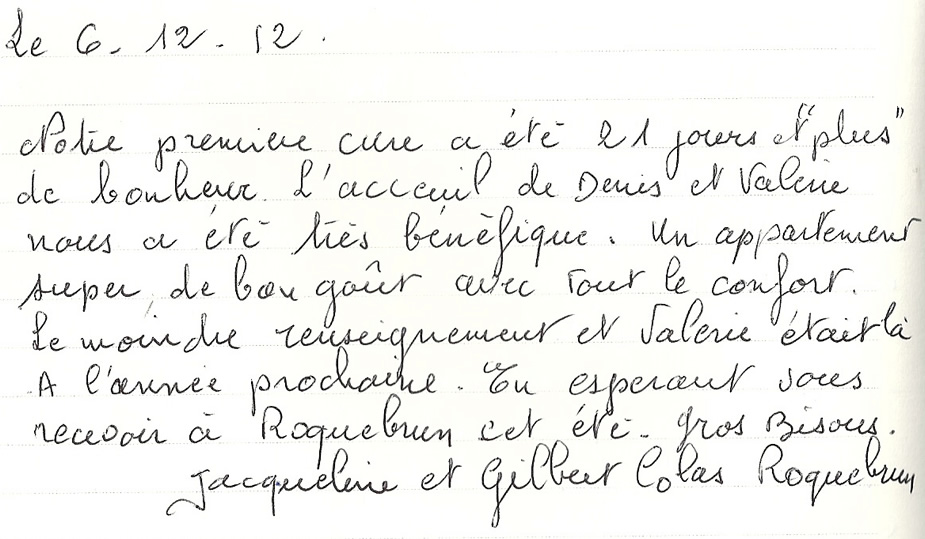 Le 6-12-12.
Notre première cure a été 21 jours et "plus"
de bonheur. L'acceuil de Denis et Valérie
nous a été très bénéfique. Un appartement
super, de bon goût avec tout le confort.
Le moindre renseignement et Valerie était là
A l'année prochaine. En esperant vous
recevoir à Roquebrun cet été. Gros Bisous.
Jacqueline et Gilbert Colas Roquebrun